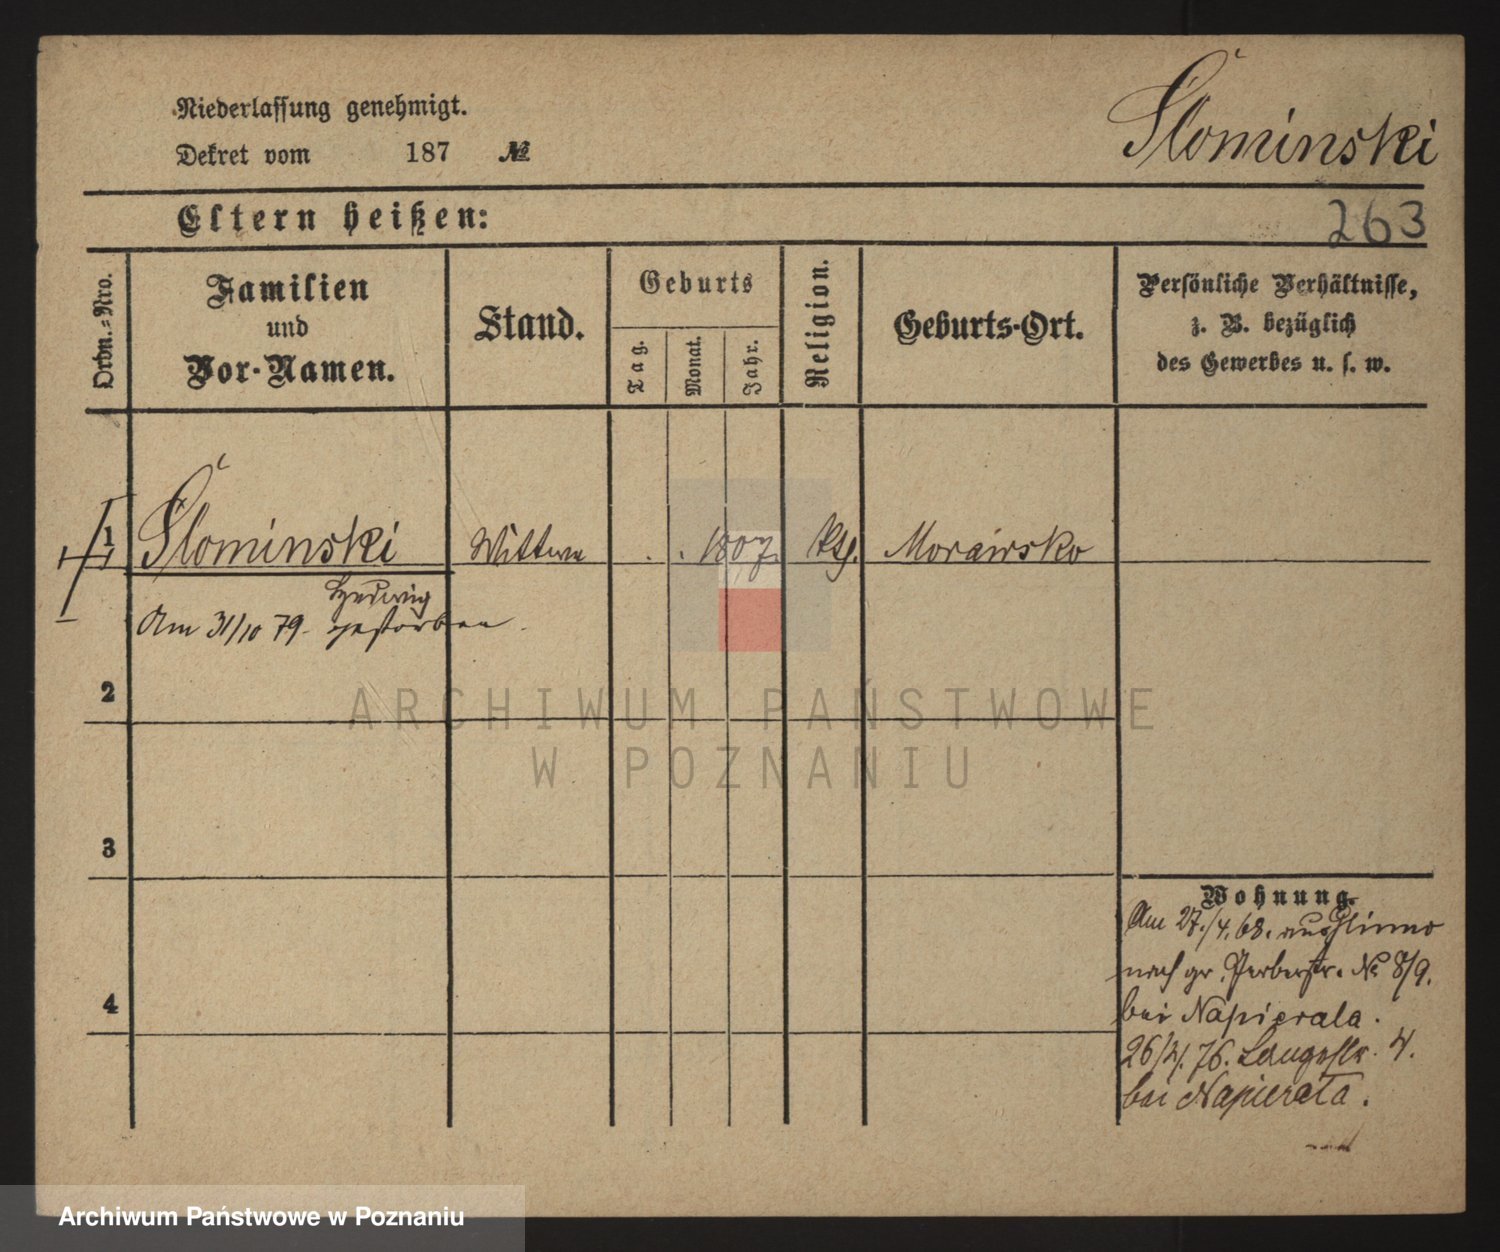 Niederlassung genehmigt.
Dekret vom 187 №
Słominski
Eltern heißen:
263
Ordn.-Nro.
Familien
und
Vor-Namen.
Stand.
Geburts
Tag.
Monat.
Jahr.
Religion.
Geburts-Ort.
Persönliche Verhältnisse,
z. B. bezüglich
des Gewerbes u. s. w.
1 Słominski Wittwe . . 1807. ktg. Morawsko
Hedwig
Am 31/10 79. gestorben.
2
ARCHIWUM PAŃSTWOWE
W POZNANIU
3
4
Wohnung.
Am 27./4. 68. aus Glinno
nach gr. Gerberstr. № 8/9.
bei Napierala.
26/4. 76. Langestr. 4.
bei Napierała.
Archiwum Państwowe w Poznaniu